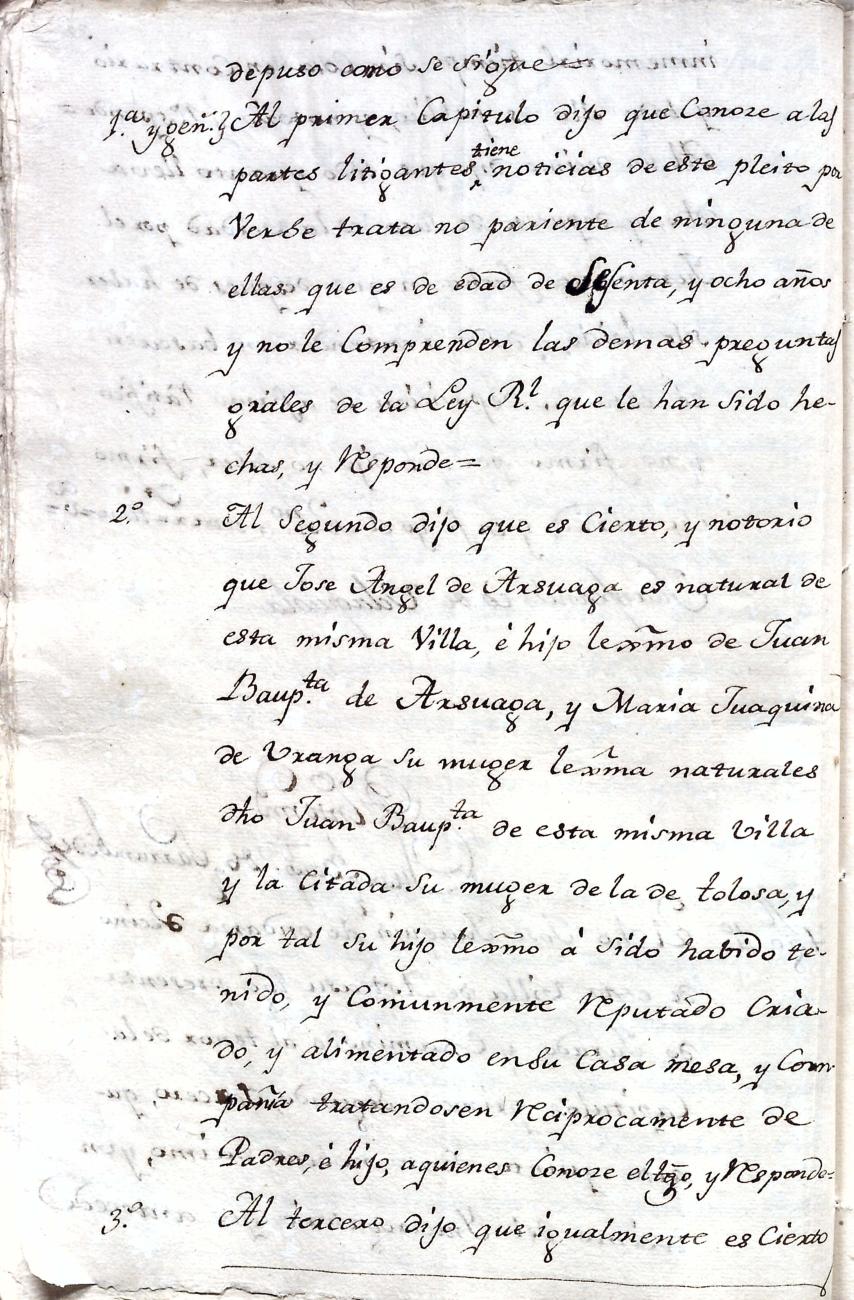 depuso como se sigue
1.ª y gen.l Al primer Capitulo dijo que Conoze a las
partes litigantes, tiene noticias de este pleito por
Verse trata no pariente de ninguna de
ellas que es de edad de Sesenta, y ocho años
y no le Comprenden las demas preguntas
grales de la Ley R.l que le han sido he-
chas, y Responde=
2.º Al Segundo dijo que es Cierto, y notorio
que Jose Angel de Arsuaga es natural de
esta misma Villa, é hijo lexmo de Juan
Baup.ta de Arsuaga, y Maria Juaquina
de Vranga su muger lexma naturales
dho Juan Baup.ta de esta misma villa
y la Citada su muger de la de tolosa, y
por tal su hijo lexmo á sido habido te-
nido, y Comunmente Reputado Cria-
do, y alimentado en su Casa mesa, y Com-
pañia tratandosen Reciprocamente de
Padres, é hijo, aquienes Conoze el tgo, y Responde=
3.º Al tercero dijo que igualmente es Cierto